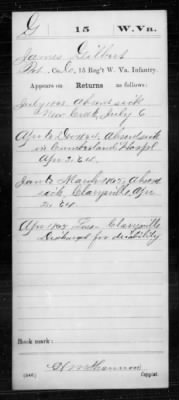 G | 15 | W. Va.
James Gilbert
Pvt., Co. C, 15 Reg't W. Va. Infantry.
Appears on
Returns as follows:
July 1863 Absent sick
New Creek, July 6
Apr to Absent sick
in Cumberland Hospl
Apr. 2, 64.
Jan to March 1865 Absent
sick, Clarysville, Apr
2, 64.
Apr 1865 Loss Clarysville
Discharged for disability
Book mark:
(546) Copyist.